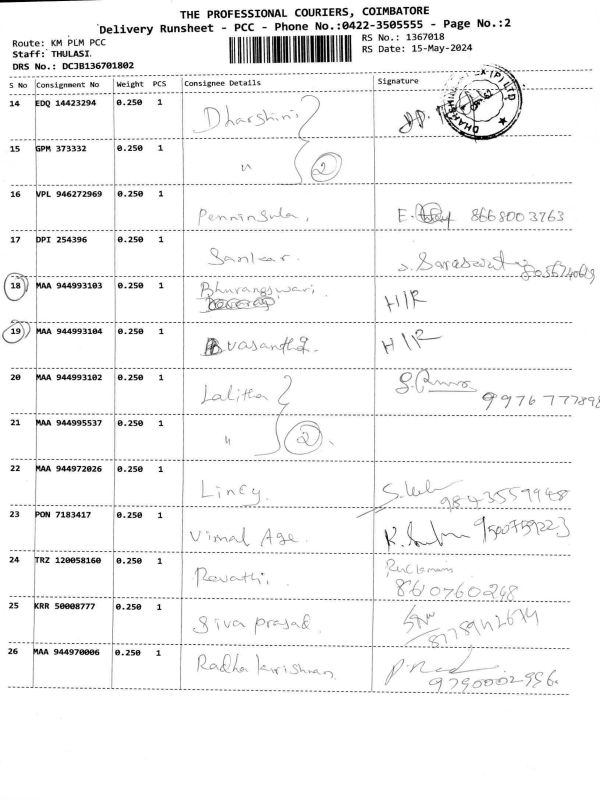 THE PROFESSIONAL COURIERS, COIMBATORE
Delivery Runsheet - PCC - Phone No.:0422-3505555 - Page No.:2
Route: KM PLM PCC
RS No.: 1367018
Staff: THULASI.
RS Date: 15-May-2024
DRS No.: DCJB136701802
S No Consignment No Weight PCS Consignee Details Signature
14 EDQ 14423294 0.250 1 Dharshini
15 GPM 373332 0.250 1 " 2
16 VPL 946272969 0.250 1 Penninsula, E. 8668003763
17 DPI 254396 0.250 1 Sankar.
18 MAA 944993103 0.250 1 Bhuvangswari H/R
19 MAA 944993104 0.250 1 Vasantha. H/R
20 MAA 944993102 0.250 1 Lalitha 9976777898
21 MAA 944995537 0.250 1 " 2
22 MAA 944972026 0.250 1 Lincy. 9843557948
23 PON 7183417 0.250 1 Vimal Age. 9500759223
24 TRZ 120058160 0.250 1 Revathi. 860760248
25 KRR 50008777 0.250 1 Siva prasad.
26 MAA 944970006 0.250 1 Radha krishnan. 9790002996.